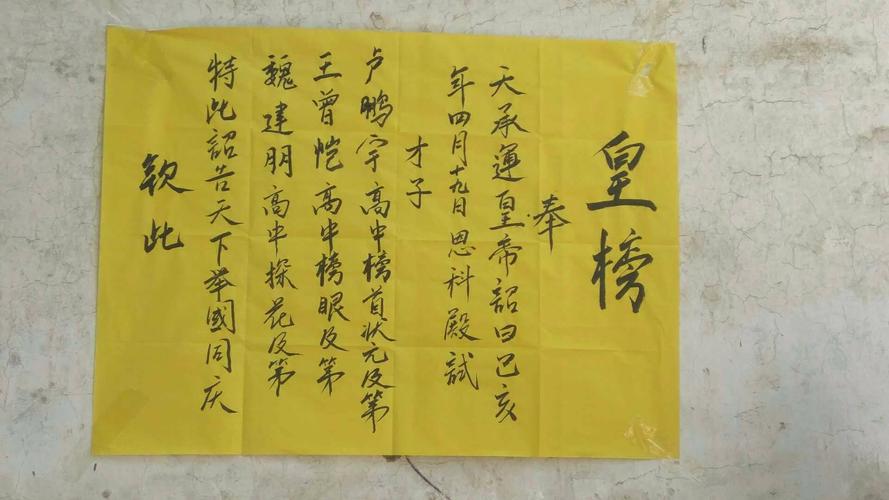 皇榜
奉
天承運皇帝詔曰己亥
年四月十九日恩科殿試
才子
卢鹏宇高中榜首狀元及第
王曾恺高中榜眼及第
魏建朋高中探花及第
特此詔告天下举國同庆
欽此